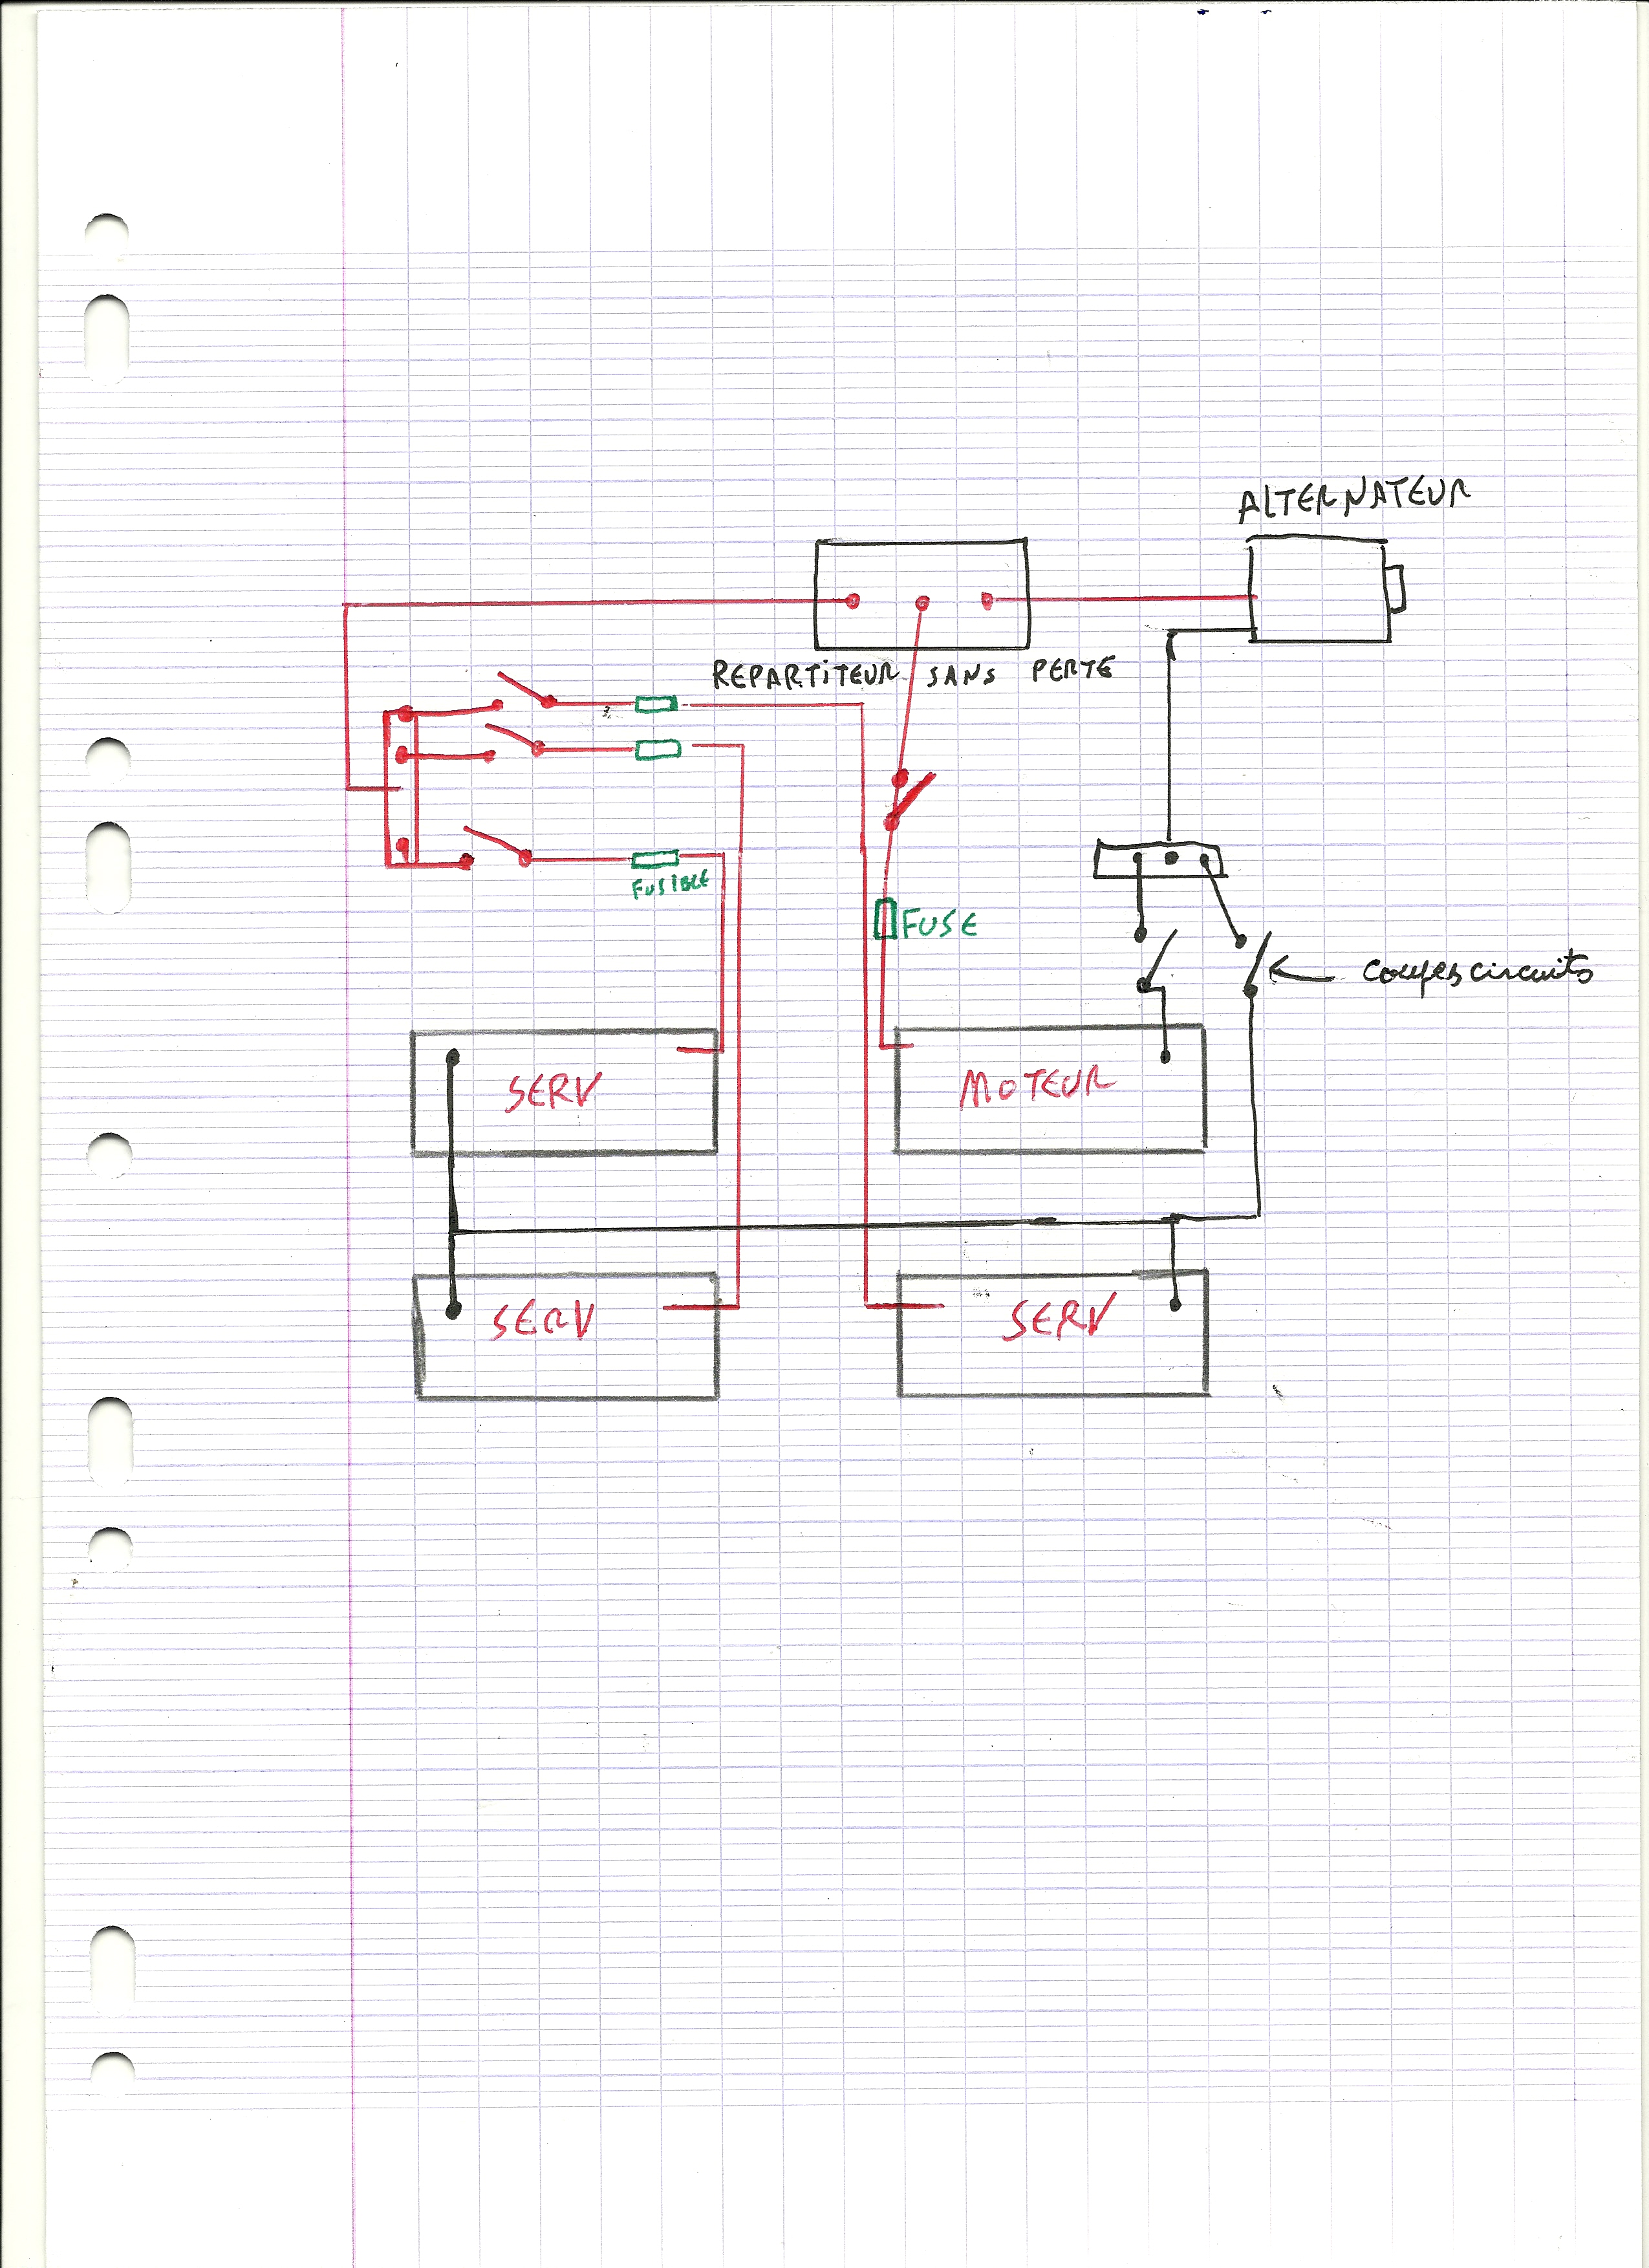 ALTERNATEUR
REPARTITEUR SANS PERTE
FUSIBLE
FUSE
coupes circuits
SERV
MOTEUR
SERV
SERV